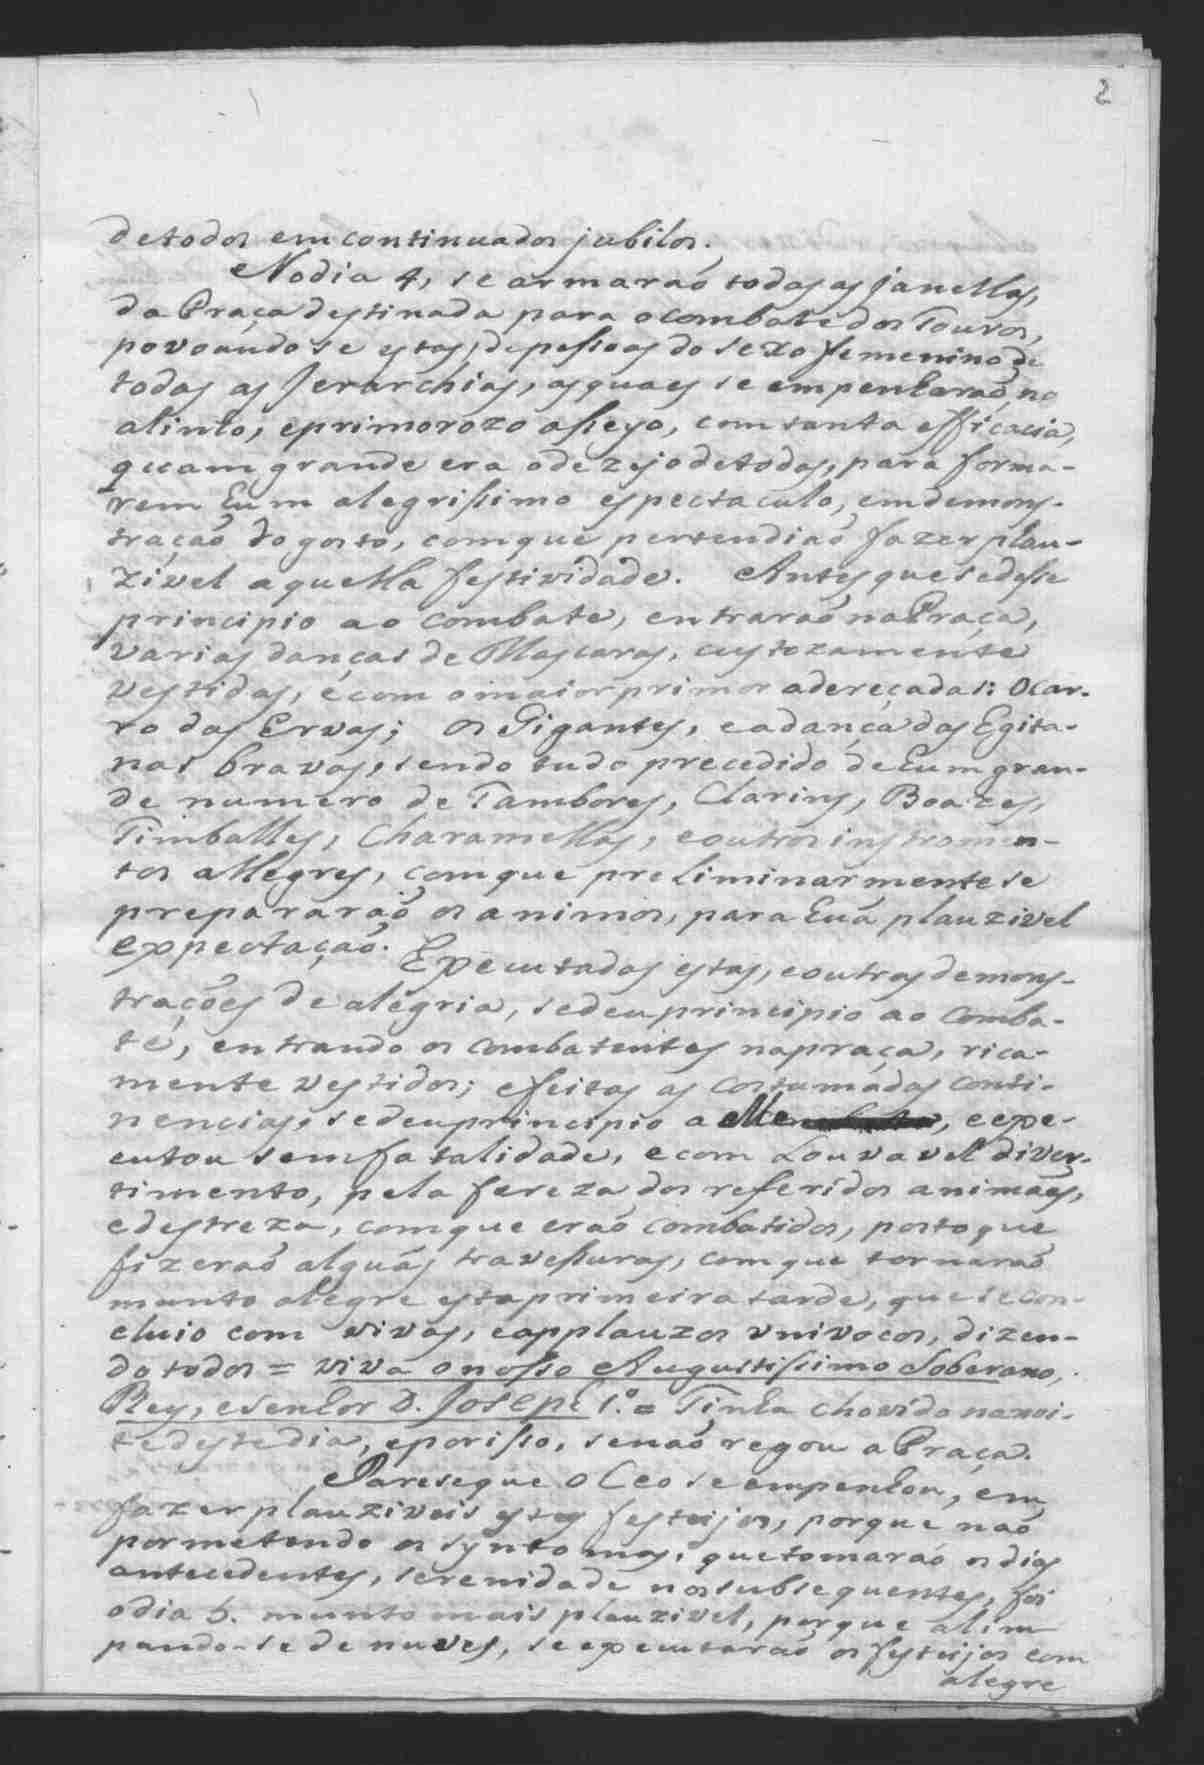 2
de todos em continuados jubilos.
No dia 4, se armaraõ todas as janellas,
da Praça destinada para o combate dos Touros,
povoando se estas, de pessoas do sexo femenino de
todas as Jerarchias, as quaes se empenharaõ, no
alinho, e primorozo asseyo, com tanta efficacia,
quam grande era o dezejo de todas, para forma-
rem hum alegrissimo espectaculo, em demons-
traçaõ do gosto, com que pertendiaõ fazer plau-
zivel aquella festividade. Antes que se desse
principio ao combate, entraraõ na Praça,
varias danças de Mascaras, custozamente
vestidas, e com o maior primor adereçadas: O Car-
ro das Ervas; os Gigantes, e a dança das Egita-
nas bravas, sendo tudo precedido de hum gran-
de numero de Tambores, Clarins, Boazes,
Timballes, Charamellas, e outros instromen-
tos allegres, com que preliminarmente se
prepararaõ os animos, para huã plauzivel
expectaçaõ. Executadas estas, e outras demons-
trações de alegria, se deu principio ao Comba-
te, entrando os combatentes na praça, rica-
mente vestidos; e feitas as costumadas conti-
nencias, se deu principio a elle, e exe-
cutou sem fatalidade, e com Louvavel diver-
timento, pela fereza dos referidos animaes,
e destreza, com que eraõ combatidos, posto que
fizeraõ alguãs travessuras, com que tornaraõ
munto alegre esta primeira tarde, que se con-
cluio com vivas, e applauzos vnivocos, dizen-
do todos = viva o nosso Augustissimo Soberano,
Rey, e senhor D. Joseph 1.º = Tinha chovido na noi-
te deste dia, e por isso, se naõ regou a Praça.
Parese que o Ceo se empenhou, em
fazer plauziveis estes festeijos, porque naõ
permetendo os syntomas, que tomaraõ os dias
antecedentes, serenidade nos subsequentes, foi
o dia 5. munto mais plauzivel, porque alim
pando-se de nuves, se executaraõ os festeijos com
alegre